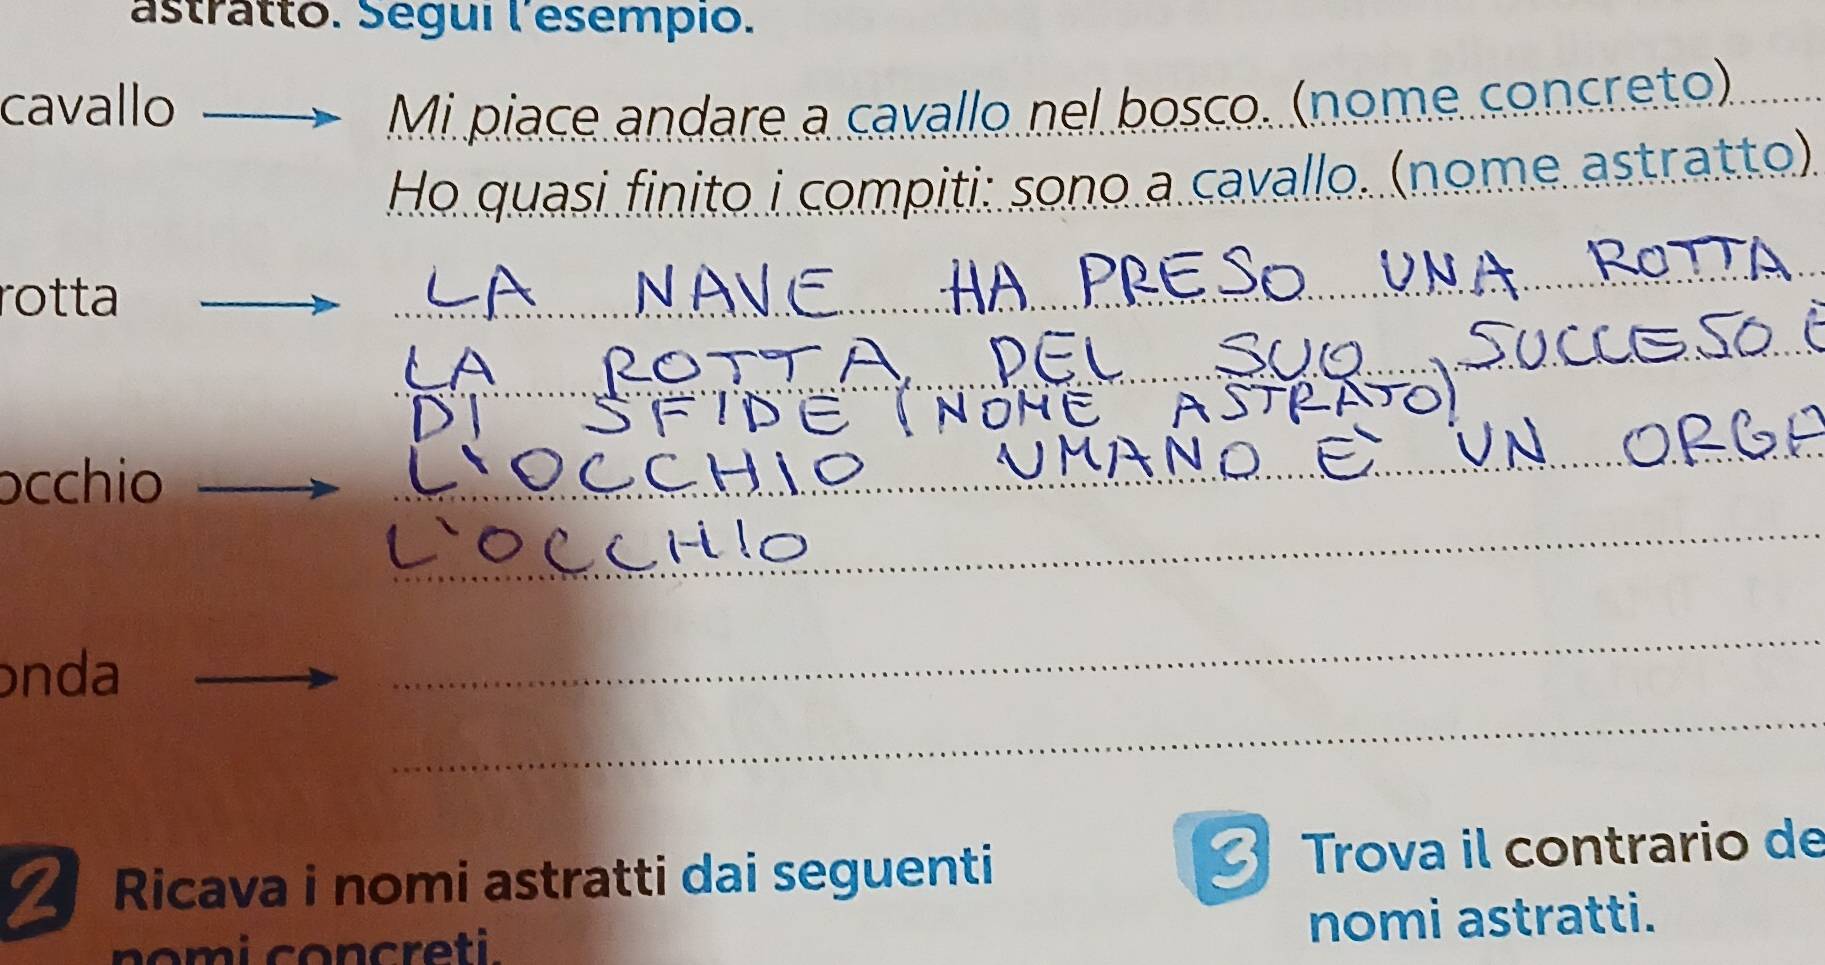 astratto. Segui l'esempio.
cavallo Mi piace andare a cavallo nel bosco. (nome concreto)
Ho quasi finito i compiti: sono a cavallo. (nome astratto)
rotta LA NAVE HA PRESO UNA ROTTA
LA ROTTA DEL SUO SUCCESO È
DI SFIDE (NOME ASTRATO)
occhio L'OCCHIO UMANO È UN ORGA
L'OCCHIO
onda
2 Ricava i nomi astratti dai seguenti
nomi concreti.
3 Trova il contrario de
nomi astratti.